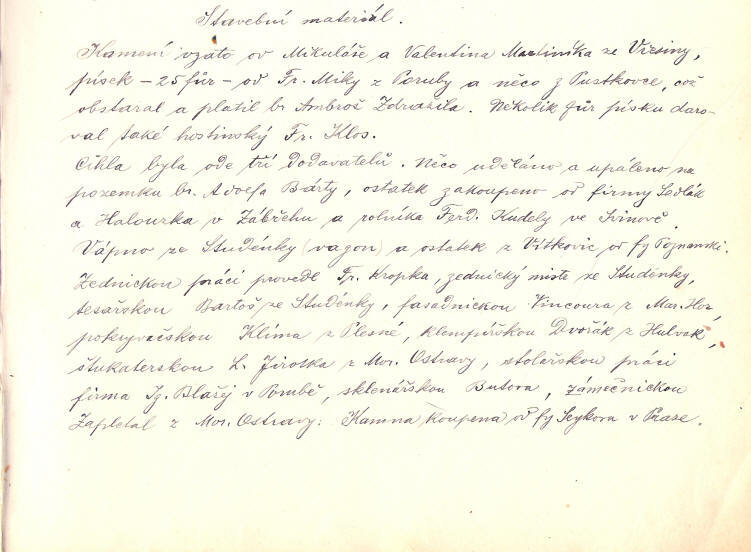 Stavební materiál.
Kamení vzato od Mikuláše a Valentina Martiníka ze Vřesiny,
písek – 25 fůr – od Fr. Miky z Poruby a něco z Pustkovce, což
obstaral a platil br. Ambrož Zdražila. Několik fůr písku daro-
val také hostinský Fr. Klos.
Cihla byla ode tří dodavatelů. Něco uděláno a upáleno na
pozemku br. Adolfa Bárty, ostatek zakoupeno od firmy Sedlák
a Halourka v Zábřehu a rolníka Ferd. Kudely ve Svinově.
Vápno ze Studénky (vagon) a ostatek z Vítkovic od fy Poznanski.
Zednickou práci provedl Fr. Kropka, zednický mistr ze Studénky,
tesařskou Bartoš ze Studénky, fasádnickou Vincoura z Mar. Hor,
pokryvačskou Klíma z Plesné, klempířskou Dvořák z Hulvak,
štukaterskou L. Jirotka z Mor. Ostravy, stolařskou práci
firma Ig. Blažej v Porubě, sklenářskou Butora, zámečnickou
Zapletal z Mor. Ostravy. Kamna koupena od fy Seykora v Praze.